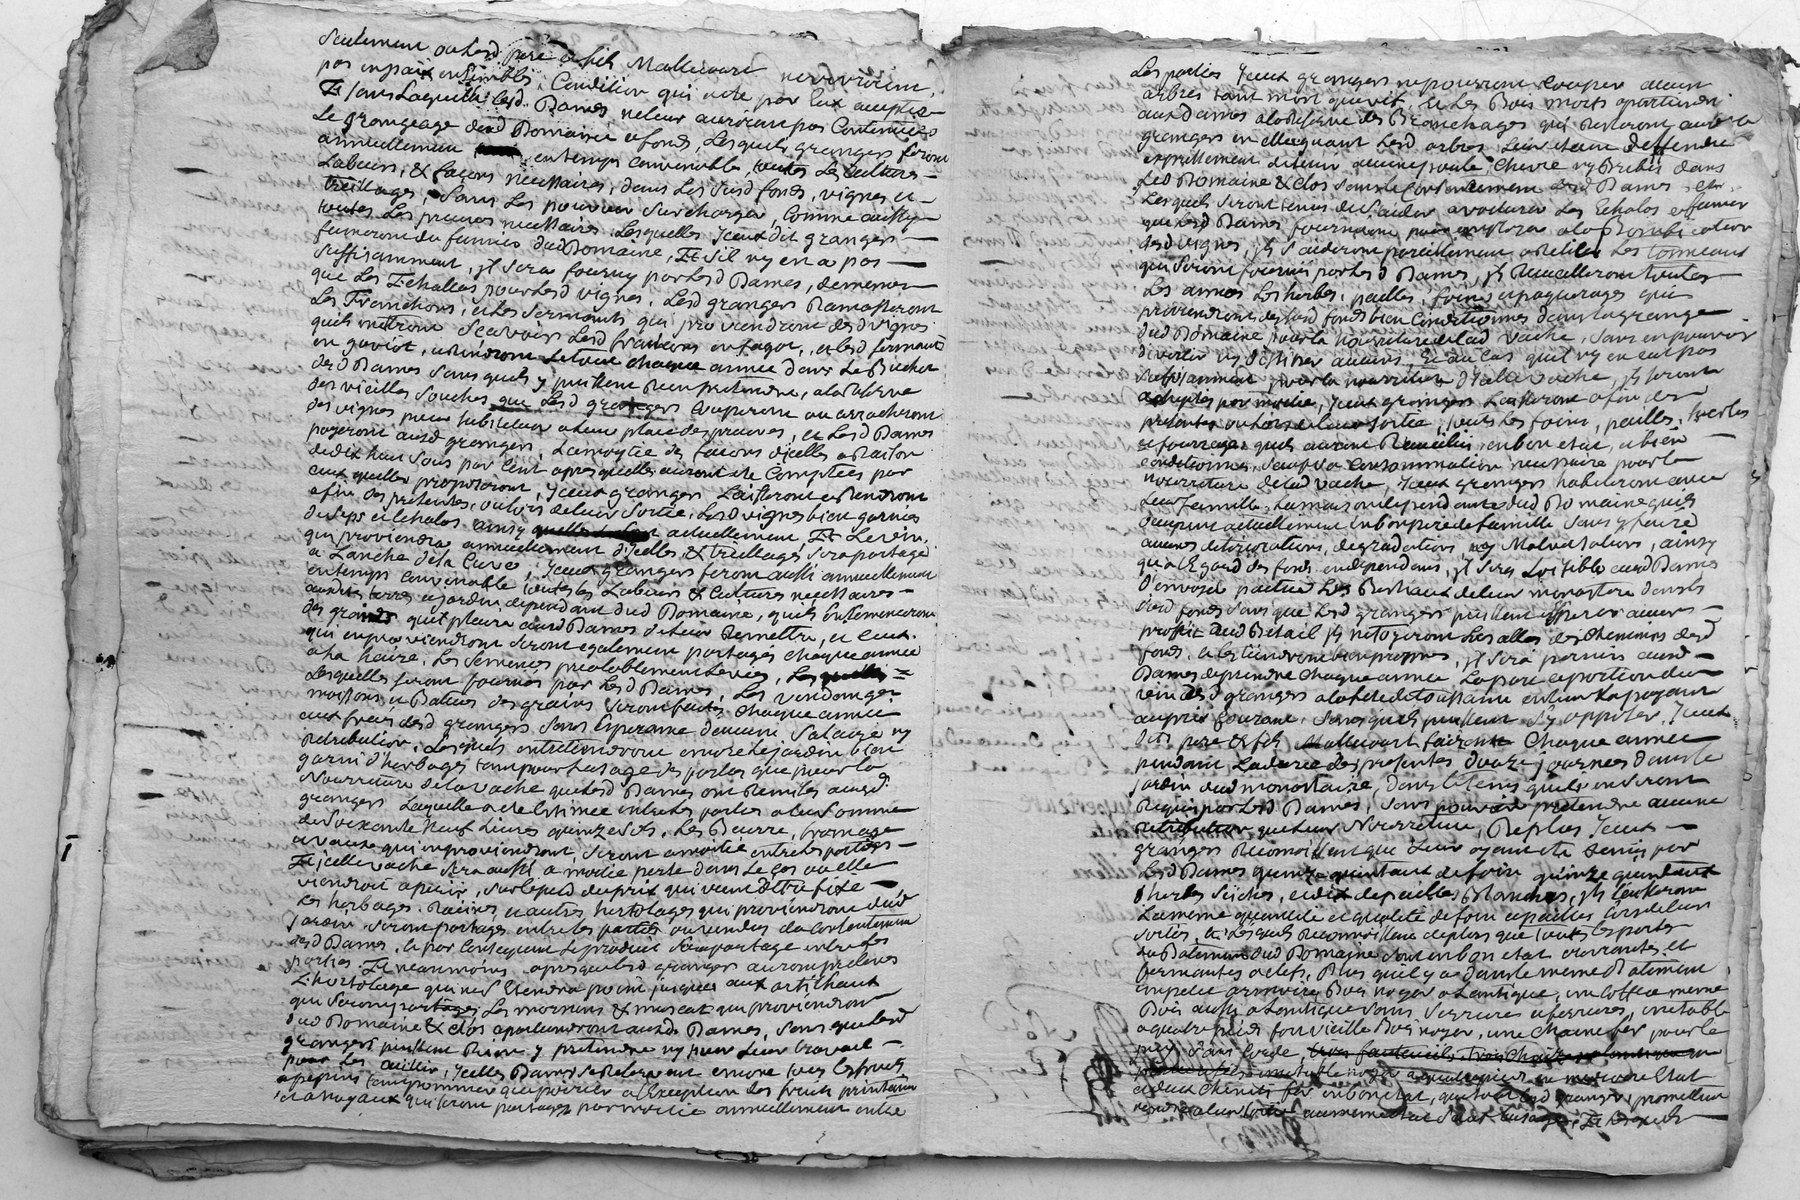 Seulement ou Lesd. pere & fils Mallecourt
pas Condition qui a été par Eux acceptée
Et sans Laquelle Lesd. Dames ne leur auroient pas Continués
Le grangeage dud Domaine & fonds, Lesquels grangers feront
annuellement en temps convenable, toutes Les Cultures
Labeurs, & façons necessaires, dans Les susd fonds, vignes et
treillages, Sans Les pouvoir Surcharger, Comme aussy
toutes Les preuves necessaires. Lesquelles yceux dit grangers
fumeront du fumier dud Domaine, Et s'il ny en a pas
Suffisamment, jl sera fourny par Lesd Dames, de meme
que Les Echallas pour Lesd vignes. Lesd grangers Ramasseront
Les franchons, et Les serments qui proviendront desd vignes
quils mettront Sçavoir Lesd francons en fagot, et Lesd serments
en gaviot, chaque année dans Le Bucher
desd Dames sans quils y puissent Rien pretendre, a la Reserve
des vieilles souches que Lesd grangers Couperont ou arracheront
des vignes pour substituer a leur place des preuves, et Lesd Dames
payeront ausd grangers, La moytié des façons d'jcelles a Raison
de dix huit Sous par Cent apres quelles auront été Comptées par
ceux quelles proposeront, yceux grangers Laisseront et Rendront
a fin des presentes, ou lors de leur Sortie, Lesd vignes bien garnies
de seps et Echalas ainsy actuellement Et Le vin
qui proviendra annuellement d'jcelles, & treillages, sera partagé
a Lanche de la Cuve, yceux grangers feront aussi annuellement
en temps convenable toutes les Labeurs & Cultures necessaires
aux terres et jardin dependant dud Domaine, quils Ensemenceront
des grains quil plaira ausd Dames de leur Remettre, et Ceux
qui en proviendront seront egalement partagés chaque année
a La haire, Les semences prealablement Levées,
Lesquelles seront fournies par Lesd Dames, Les vendanges
moissons et Batues des grains seront faites, chaque année
aux frais desd grangers sans Esperance d'aucun Salaire ny
Retribution, Lesquels entretiendront encore Le jardin bien
garni d'herbages tant pour Lusage des parties que pour la
Nourriture de la vache que Lesd Dames ont Remises ausd.
grangers Laquelle a été Estimée entre Les parties a la somme
de Soixante Neuf Livres quinze sols, Les Beurre, fromage
et vaux qui en proviendront, seront a moitié entre Les parties
Et jcelle vache sera aussi a moitié perte dans Le Cas ou elle
viendroit a perir, sur Le pied du prix qui vient d'être fixé
Les herbages, Racines, et autres hortolages qui proviendront dud
Jardin, seront partagés entre Les parties ou vendus du Consentement
desd Dames, et par Consequent Le produit sera partagé entre Les
parties. Et neanmoins apres que Lesd grangers auront prelevés
L'hortolage qui ne s'Etendra point jusques aux artichaux
qui seront partagés Les & muscats qui proviendront
dud Domaine & clos apartiendront ausd. Dames, sans que Lesd
grangers puissent Rien y pretendre ny pour Leur travail
pour Les cuillir, ycelles Dames se Reservent encore tous Les fruits
a pepins tant pommier que poirier a l'Exception des fruits printaniers
et a noyaux qui seront partagés par moitié annuellement entre
Les parties yceux grangers ne pourront Couper aucun
arbres tant mort que vif, et Les Bois morts apartiendront
aux Dames a la Reserve des Branchages qui Resteront auxd
grangers en Ellaguant Lesd arbres, Leur etant deffendu
expressement de tenir aucune poule, Chevre ny Brebis dans
Led Domaine & Clos sans le Consentement desd Dames
Lesquels seront tenus de s'aider a voiturer Les Echalas et fumier
que Lesd Dames fourniront pour employer a la Bonification
desd vignes, jls s'aideront pareillement a Relier Les tonneaux
qui seront fournis par Lesd Dames, jls Recueilleront toutes
Les années Les herbes, pailles, foins et paquerages qui
proviendront desd fonds bien Conditionnés dans la grange
dud Domaine pour la Nourriture de lad vache, Sans en pouvoir
divertir ny distraire aucuns, Et au Cas quil ny en eut pas
suffisamment pour la nourriture d'jcelle vache, jls seront
achetés par moitié, yceux grangers Laisseront a fin des
presentes ou lors de leur sortie, tous Les foins, pailles, herbes
et fourrages quils auront Recueilli en bon etat, et bien
conditionnés, sauf La Consommation necessaire pour la
nourriture de lad vache, yceux grangers habiteront avec
Leur famille, La maison dependante dud Domaine quils
occupent actuellement en bon pere de famille sans y faire
aucunes deteriorations, degradations, ny Malversations, ainsy
qu'a l'Egard des fonds en dependants, jl sera Loisible ausd Dames
d'envoyer paitre Les Bestiaux de leur monastere dans Les
susd fonds sans que Lesd grangers puissent Esperer aucun
profit dud Betail, jls nétoyeront Les allées des Chemins desd
fonds, et Les tiendront bien propres, jl sera permis ausd
Dames de prendre chaque année La part et portion du
vin desd grangers a la fête de toussaint en Leur La payant
au prix Courant, sans quils puissent s'y opposer, yceux
dits pere & fils Mallecourt faironts Chaque année
pendant La durée des presentes douze journées dans le
jardin dud monastaire, dans Le tems quils en seront
Requis par Lesd Dames, sans pouvoir pretendre aucune
retribution que leur Nourriture, De plus yceux
grangers Reconnoissent que Leur ayant été Remis par
Lesd Dames quinze quintaux de foin quinze quintaux
d'herbes seiches, et dix de pailles Blanches, jls Laisseront
La meme quantité et qualité de foin et pailles lors de leur
sortie, Et Lesquels Reconnoissent de plus que toutes les portes
du Batiment dud Domaine sont en bon etat ouvrantes et
fermantes a clefs, Plus quil y a dans le meme Batiment
une petite armoire Bois noyer a Lantique, un Coffre meme
Bois aussi a Lantique sans serrures et ferrures, une table
a quatre pieds fort vieille Bois noyer, une Chaine fer pour le
puy sans Corde, trois fauteuils, trois Chaises a Lantique
une table noyer en mediocre Etat
et deux Chenets fer en bon etat, que tout Lesd grangers promettent
rendre a leur sortie au meme etat sauf Lusage, Et